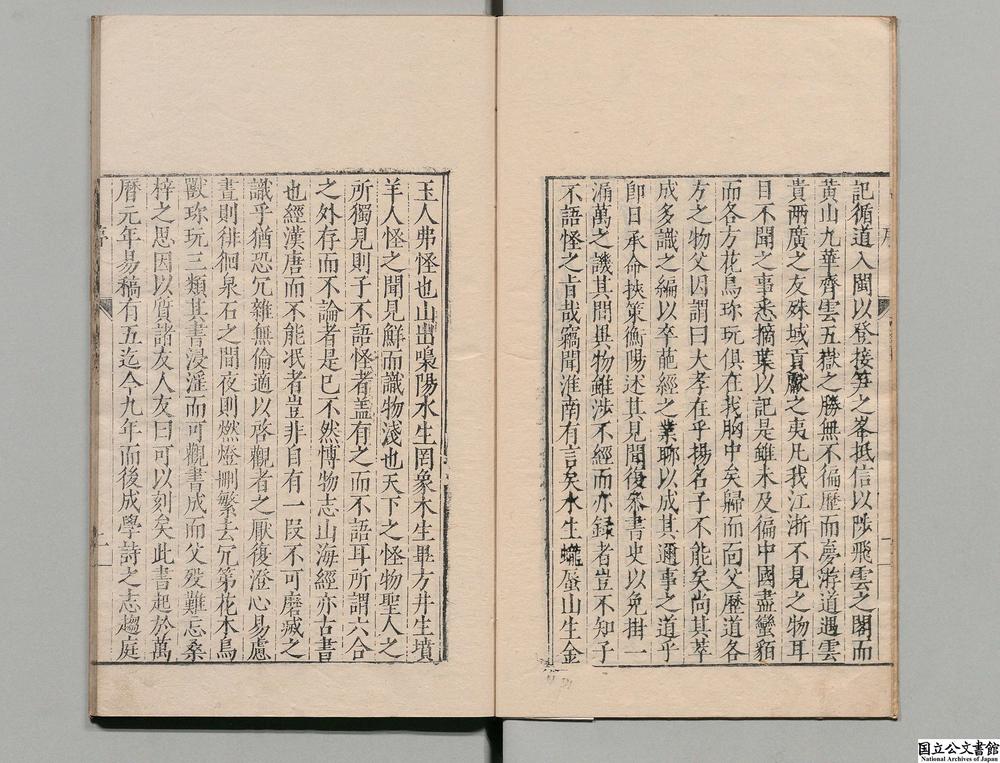 記循道入閩以登接笋之峯抵信以陟飛雲之閣而
黄山九華齊雲五嶽之勝無不偏歷而慶滸道遇雲
貴兩廣之友殊域貢獻之夷凡我江浙不見之物耳
目不聞之事悉摘葉以記是雖未及偏中國盡蠻貊
而各方花鳥珎玩俱在我胸中矣歸而面父歷道各
方之物父因謂曰大孝在乎揚名子不能矣尚其萃
成多識之編以卒葩經之業聊以成其邇事之道乎
即日承命挾策衡陽述其見聞復叅書史以免掛一
漏萬之譏其間異物雖涉不經而亦録者豈不知子
不語怪之㫖哉竊聞淮南有言矣水生蠬蜃山生金
玉人弗怪也山出嘄陽水生罔象木生畢方井生墳
羊人怪之聞見鮮而識物淺也天下之怪物聖人之
所獨見則子不語怪者葢有之而不語耳所謂六合
之外存而不論者是已不然愽物志山海經亦古書
也經漢唐而不能泯者豈非自有一叚不可磨滅之
識乎猶恐冗雜無倫適以啓觀者之厭復澄心易慮
晝則徘徊泉石之間夜則燃燈刪繁去冗第花木鳥
獸珎玩三類其書浸淫而可觀書成而父歿難忘桑
梓之思因以質諸友人友曰可以刻矣此書起於萬
曆元年易稿有五迄今九年而後成學詩之志趨庭
序
二
国立公文書館
National Archives of Japan